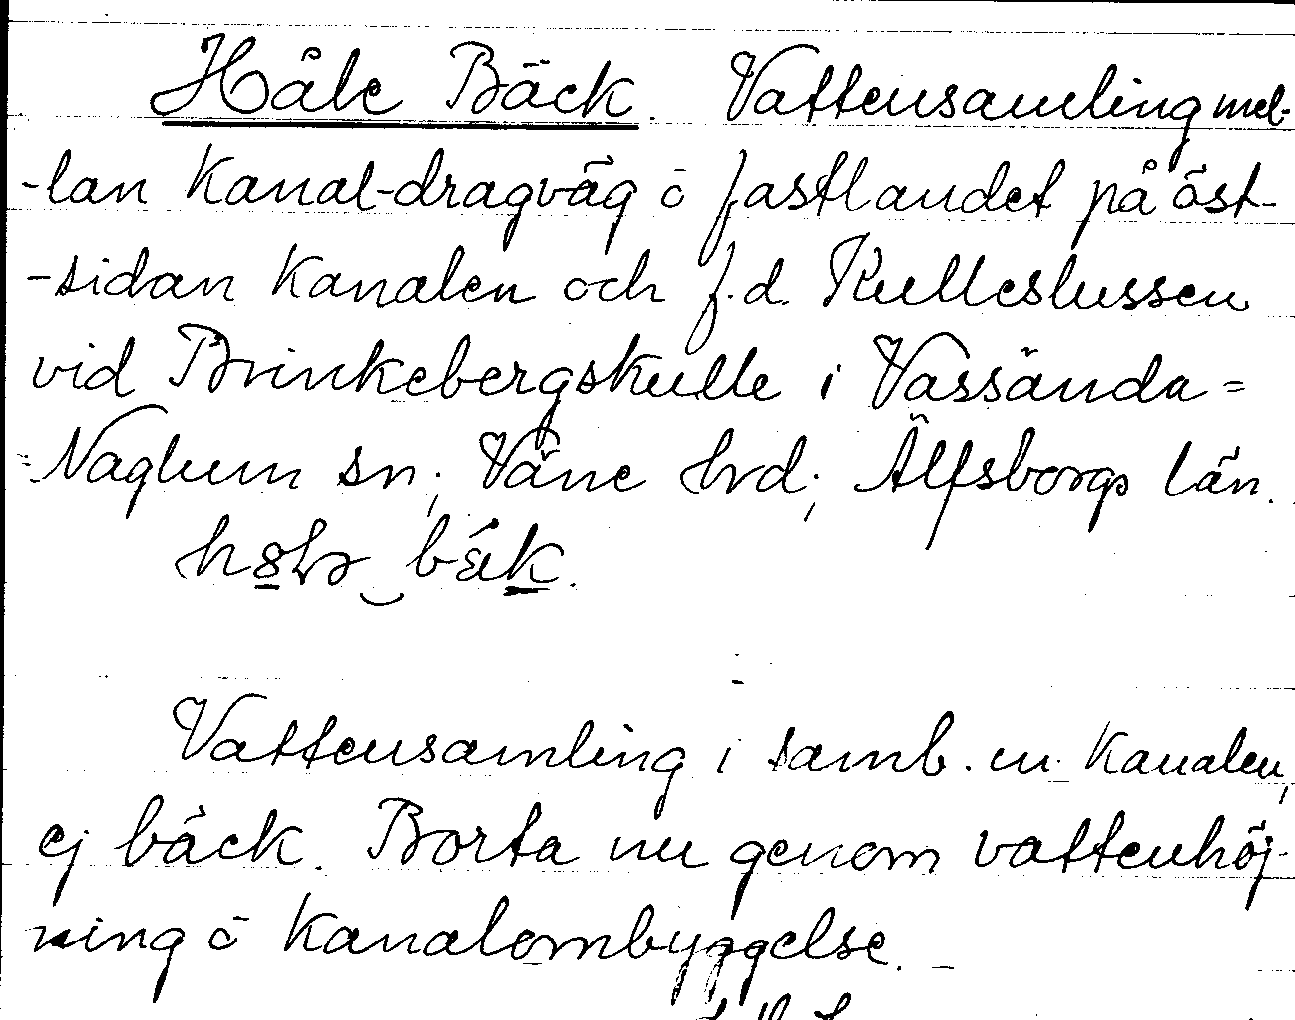 Håle Bäck. Vattensamling mel-
-lan kanal-dragväg ö fastlandet på öst-
-sidan kanalen och f.d. Kulleslussen
vid Brinkebergskulle i Vassända=
=Naglum sn; Väne hrd; Älfsborgs län.
bäk.
Vattensamling i samb. m. kanalen,
ej bäck. Borta nu genom vattenhöj-
ning ö kanalombyggelse. -